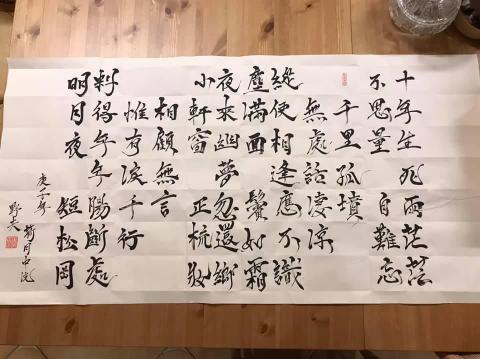 十年生死兩茫茫
不思量 自難忘
千里孤墳
無處話淒涼
縱使相逢應不識
塵滿面 鬢如霜
夜來幽夢忽還鄉
小軒窗 正梳妝
相顧無言
惟有淚千行
料得年年腸斷處
明月夜 短松岡
庚子年菊月中浣
野夫